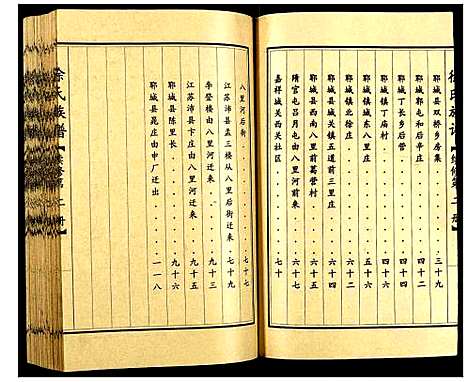 鄆城县双桥乡房集 三十九
鄆城郭屯和后辛庄 四十四
鄆城丁长乡后营 四十四
鄆城镇丁庙村 四十四
鄆城城关东八里庄 六十二
鄆城镇北徐庄 六十二
鄆城关镇五道前三里庄 六十四
鄆城县西南八里前葛营村 六十七
隋官屯吕月屯由八里河前来 六十七
嘉祥城关西关社区 七十
八里河后街 七十七
江苏沛县孟三楼从八里后街迁来 七十九
李登楼由八里河迁来 九十三
江苏沛县卞庄由八里河迁来 九十五
鄆城县陈里长 九十六
鄆城县晁庄由申厂迁出 一一八
徐氏族谱【续修第二册】